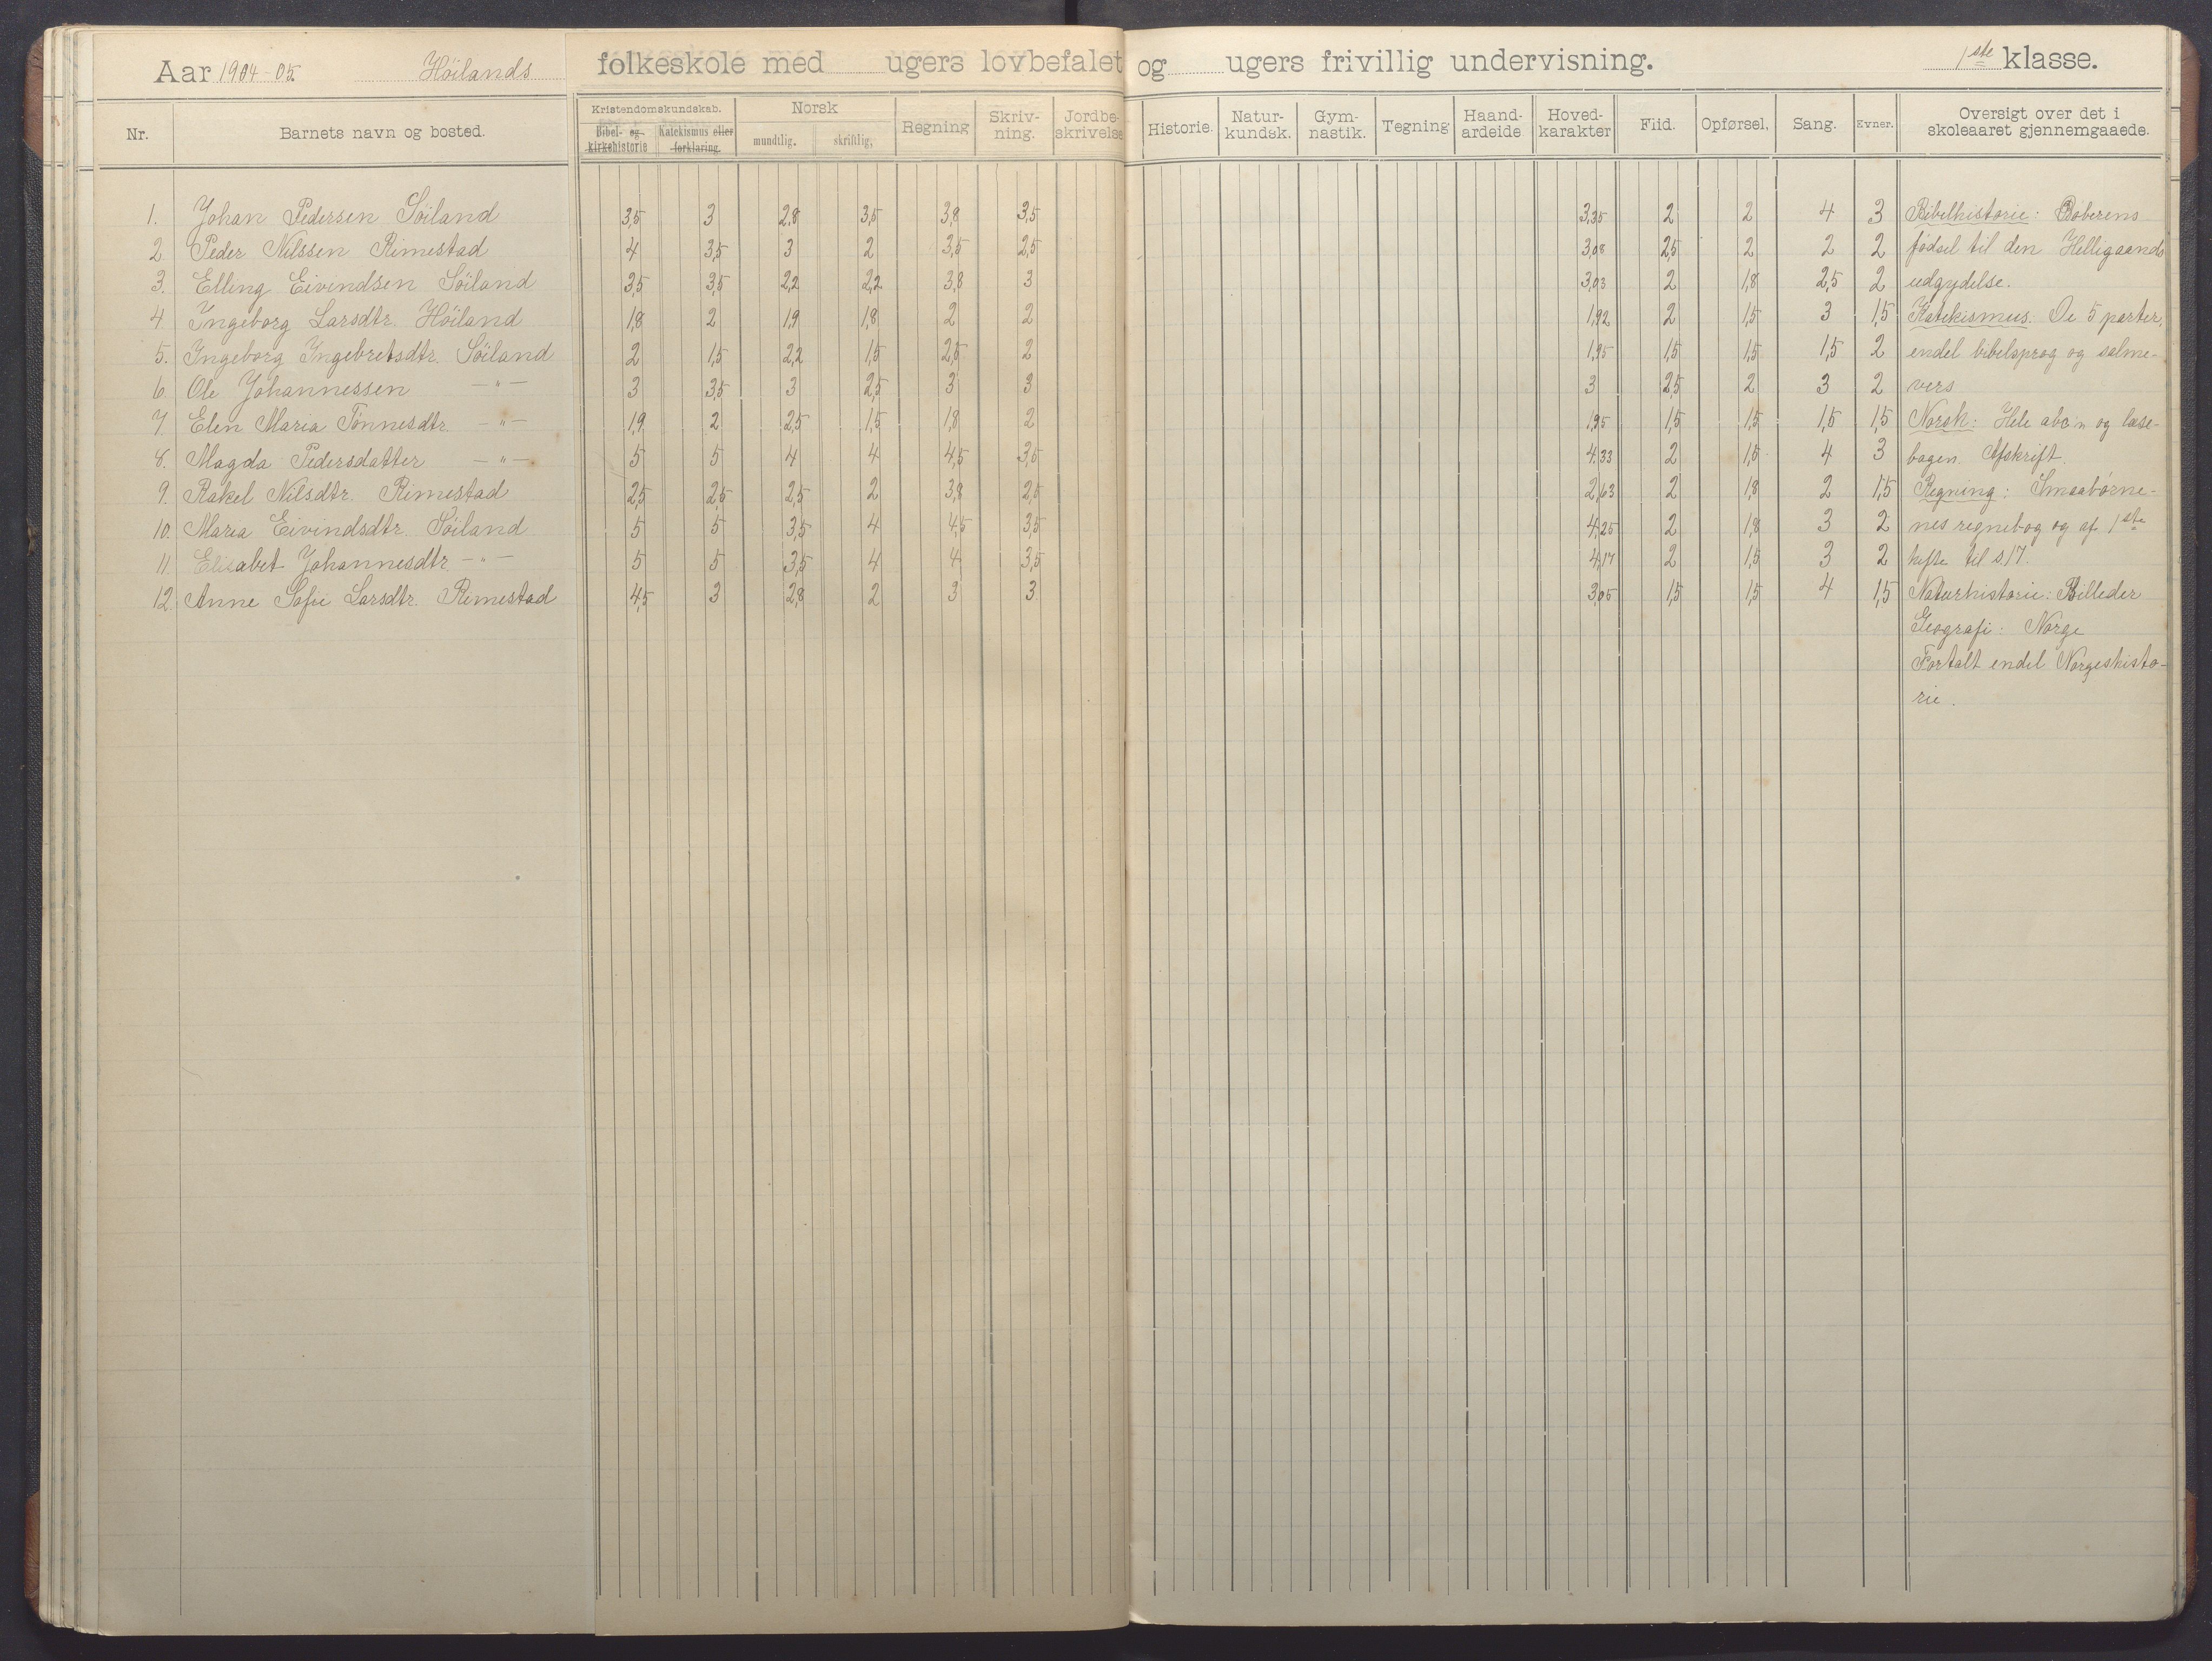 Aar 1904-05 Höilands folkeskole med ugers lovbefalet og ugers frivillig undervisning. 1ste klasse.
Nr. Barnets navn og bosted. Kristendomskundskab. Bibel- og kirkehistorie Katekismus eller forklaring. Norsk mundtlig. skriftlig, Regning Skriv-ning. Jordbe-skrivelse Historie. Natur-kundsk. Gym-nastik. Tegning Haand-arbeide Hoved-karakter Flid. Opførsel, Sang. Evner. Oversigt over det i skoleaaret gjennemgaaede.
1. Johan Pedersen Söiland 3,5 3 2,8 3,5 3,8 3,5 3,35 2 2 4 3 Bibelhistorie: Döberens
2 Peder Nilssen Rimestad 4 3,5 3 2 3,5 2,5 3,08 2,5 2 2 2 fødsel til den Helligaands
3. Elling Eivindsen Söiland 3,5 3,5 2,2 2,2 3,8 3 3,03 2 1,8 2,5 2 udgydelse.
4 Ingeborg Larsdtr. Höiland 1,8 2 1,9 1,8 2 2 1,92 2 1,5 3 1,5 Katekismus. De 5 parter,
5. Ingeborg Ingebretsdtr. Söiland 2 1,5 2,2 1,5 2,5 2 1,95 1,5 1,5 1,5 2 endel bibelsprog og salme-
6. Ole Johannessen — " — 3 3,5 3 2,5 3 3 3 2,5 2 3 2 vers
7. Elen Maria Tönnesdtr. — " — 1,9 2 2,5 1,5 1,8 2 1,95 1,5 1,5 1,5 1,5 Norsk: Hele abc'n og læse-
8. Magda Pedersdatter — " — 5 5 4 4 4,5 3,5 4,33 2 1,5 4 3 bogen. Afskrift.
9. Rakel Nilsdtr. Rimestad 2,5 2,5 2,5 2 3,8 2,5 2,63 2 1,8 2 1,5 Regning: Smaabørne-
10. Maria Eivindsdtr. Söiland 5 5 3,5 4 4,5 3,5 4,25 2 1,8 3 2 nes regnebog og af 1ste
11. Elisabet Johannesdtr — " — 5 5 3,5 4 4 3,5 4,17 2 1,5 3 2 hefte til s. 17.
12 Anne Sofie Larsdtr. Rimestad 4,5 3 2,8 2 3 3 3,05 1,5 1,5 4 1,5 Naturhistorie: Billeder
Geografi: Norge
Fortalt endel Norgeshisto-
rie.